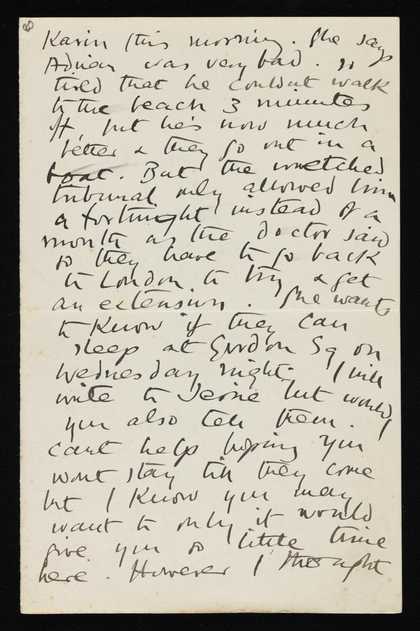 Karin this morning. She says
Adrian was very bad. so
tired that he couldnt walk
to the beach 3 minutes
off, but he's now much
better & they go out in a
boat. But the wretched
tribunal only allowed him
a fortnight instead of a
month as the doctor said
so they have to go back
to London to try & get
an extension. She wants
to know if they can
sleep at Gordon Sq on
Wednesday night. I will
write to Jessie but would
you also tell them. I
cant help hoping you
wont stay till they come
but I know you may
want to only it would
give you so little time
here. However I thought